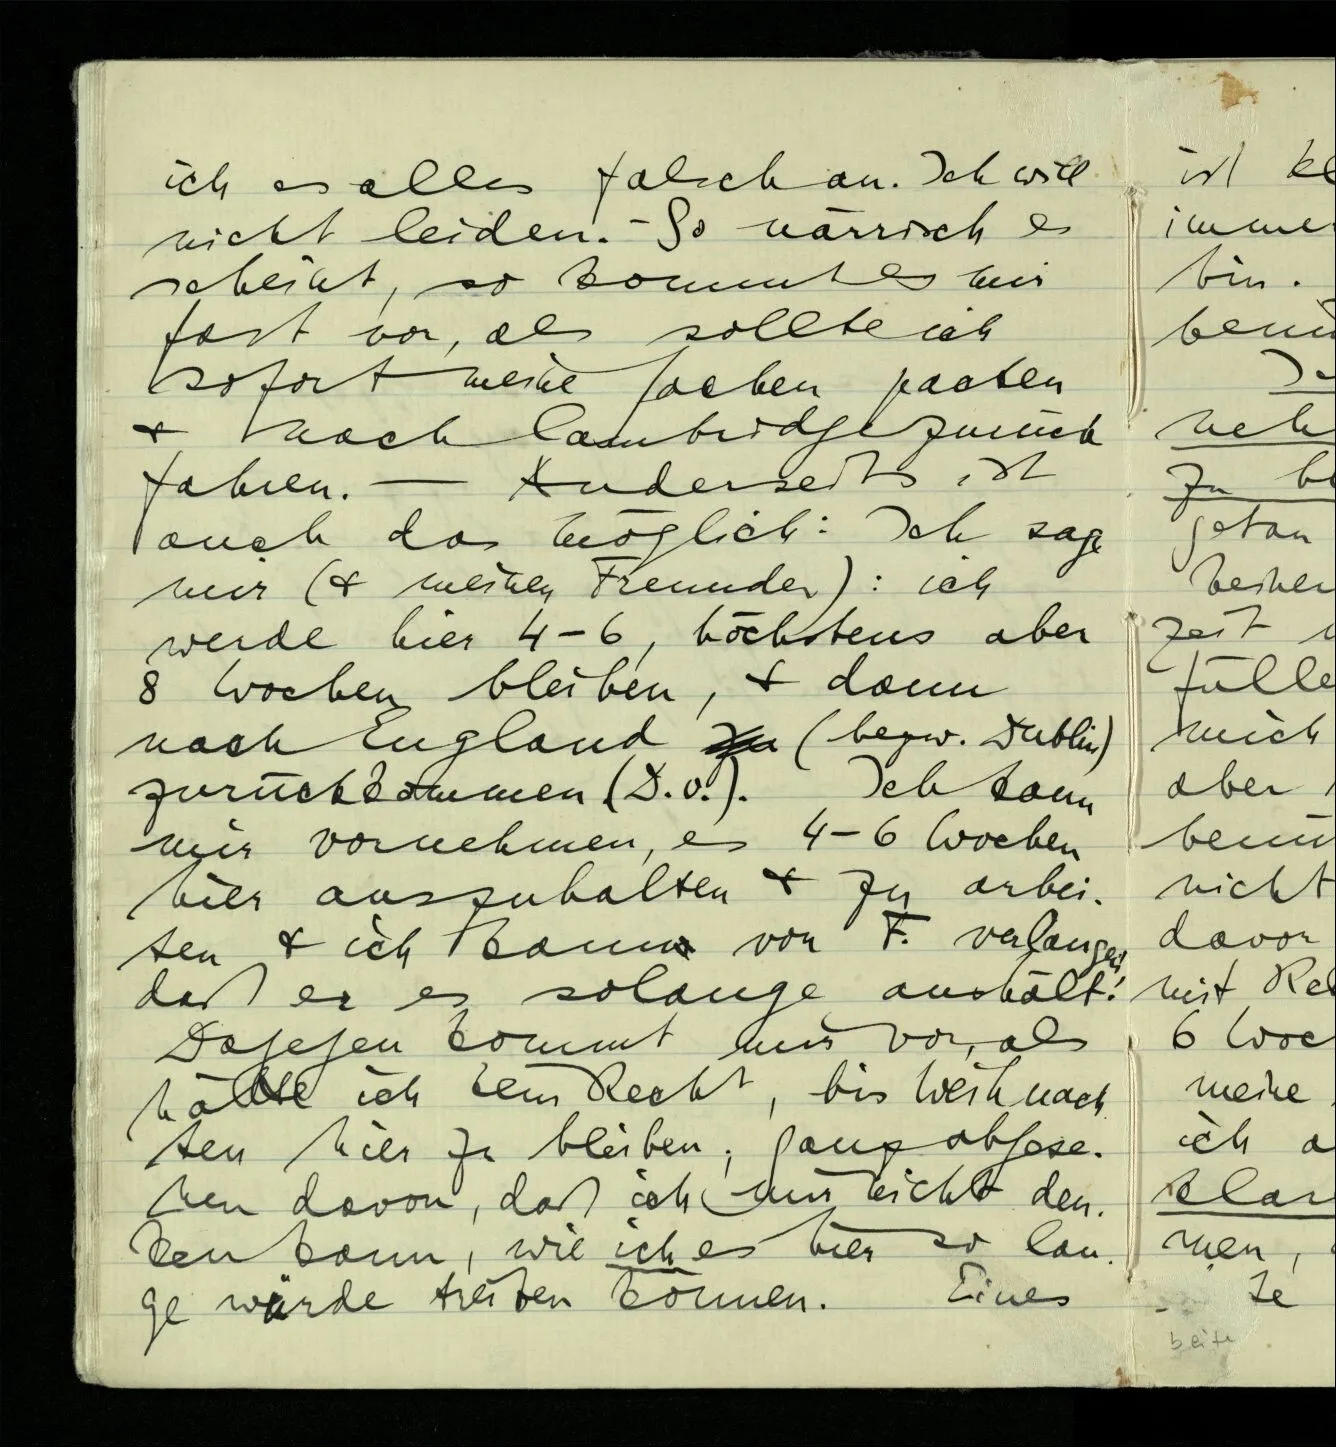 ich es alles falsch an. Ich will
nicht leiden. – So närrisch es
scheint, so kommt es mir
fast vor, als sollte ich
sofort meine Sachen packen
& nach Cambridge zurück
fahren. — Anderseits ist
auch das möglich: Ich sage
mir (& meinen Freunden): ich
werde hier 4–6, höchstens aber
8 Wochen bleiben, & dann
nach England (bezw. Dublin)
zurückkommen (D.v.). Ich kann
mir vornehmen, es 4–6 Wochen
hier auszuhalten & zu arbei-
ten & ich kann von F. verlangen
daß er es solange aushält!
Dagegen kommt mir vor, als
hätte ich kein Recht, bis Weihnach
ten hier zu bleiben; ganz abgese-
hen davon, daß ich mir nicht den-
ken kann, wie ich es hier so lan-
ge würde treiben können. Eines
ist
immer
bin.
zu
getan
keinen
zeit
fülle
mich
aber
nicht
davor
mit
6
meine
ich
men,
te